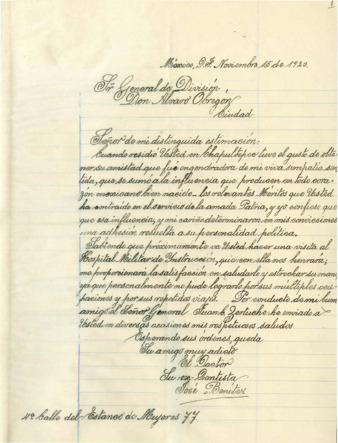 1
México, D.F. Noviembre 15 de 1920.
Sr. General de División,
Don Alvaro Obregon
Ciudad
Señor de mi distinguida estimación:
Cuando residió Usted en Chapultepec tuve el gusto de obte-
ner su amistad que fué engendradora de mi viva simpatía, sen-
tida, que, se sumó a la influencia que producen en todo cora-
zón mexicano bien nacido los relevantes Méritos que Usted
ha contraido en el servicio de la amada Patria, y yo confieso que
que esa influencia, y mi cariño determinaron en mis convicciones
una adhesión resuelta a su personalidad política.
Sabiendo que próximamente va Usted hacer una visita al
Hospital Militar de Instrucción, que con ella nos honrará,
me proporcionará la satisfacción en saludarlo y estrechar su mano
ya que personalmente no pude lograrlo por sus multiples ocu-
paciones y por sus repetidos viajes. Por conducto de mi buen
amigo el Señor General Juan C. Zertuche he enviado a
Usted en diversas ocasiones mis respetuosos saludos
Esperando sus ordenes, queda
Su amigo muy adicto
El Doctor
Su ex-Dentista
José Benítez
4a Calle del Estanco de Mujeres 77